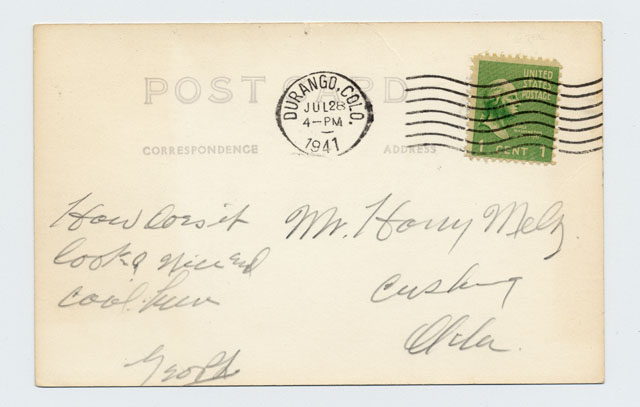 POST CARD
DURANGO, COLO.
JUL 28
4-PM
1941
UNITED
STATES
POSTAGE
1 CENT 1
CORRESPONDENCE
ADDRESS
How does it
look nice and
cool here
Mr. Harry
Cushing
Okla.